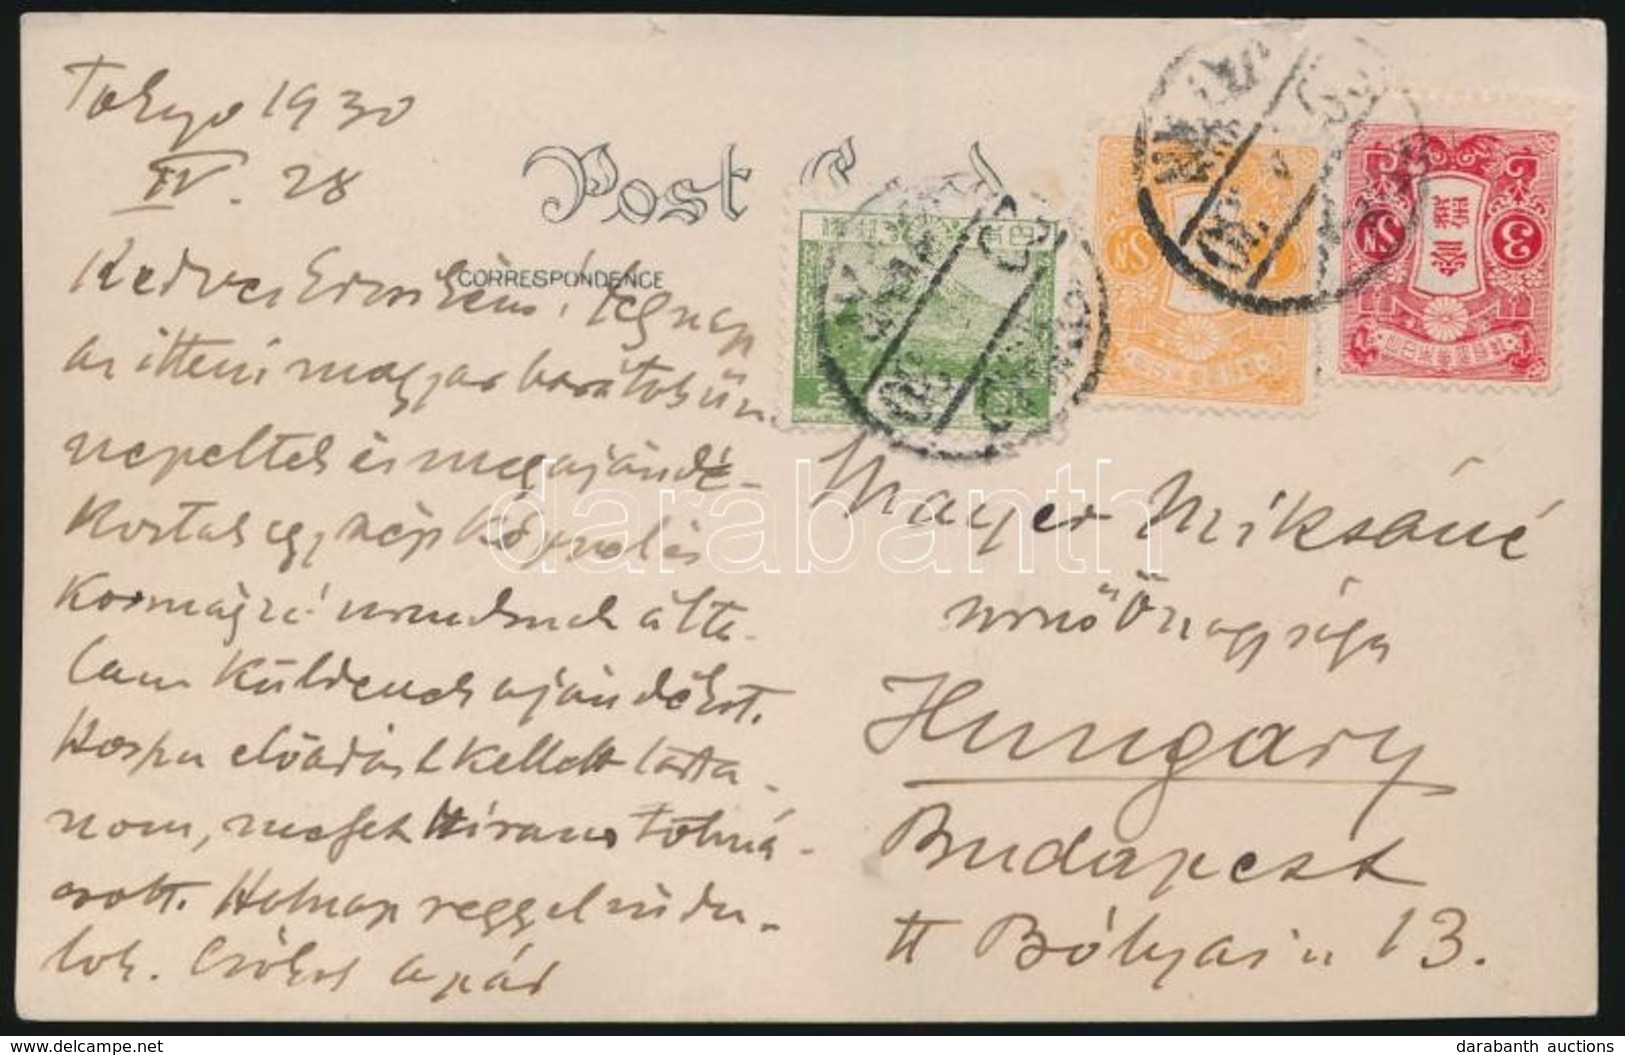 Tokyo 1930
IV. 28
Post Card
CORRESPONDENCE
Kedves Erzsikém! Tegnap
az itteni magyar barátok ün-
nepeltek és megajándé-
koztak egy nép
Kormányzó urunknak álta-
lam küldenek ajándékot.
Hosszu előadást kellett tarta-
nom, melyet Hirano tolmá-
csolt. Holnap reggel indu-
lok. Csókol apád
3 Sn
Mayer Miksáné
urnő Őnagysága
Hungary
Budapest
II Bólyai u 13.
darabanth
www.delcampe.net
darabanth auctions